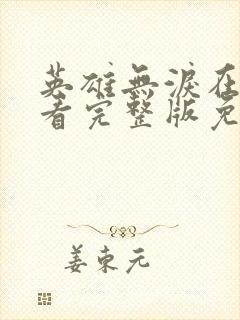 英雄無淚在
看完整版免
姜東元